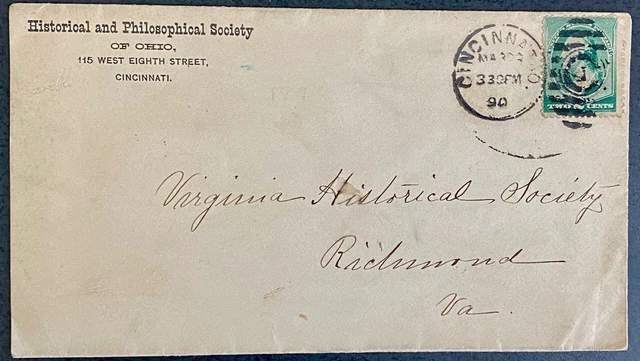 Historical and Philosophical Society
OF OHIO,
115 WEST EIGHTH STREET,
CINCINNATI.
CINCINNATI, O.
330PM
90
TWO CENTS
Virginia Historical Society
Richmond
Va.